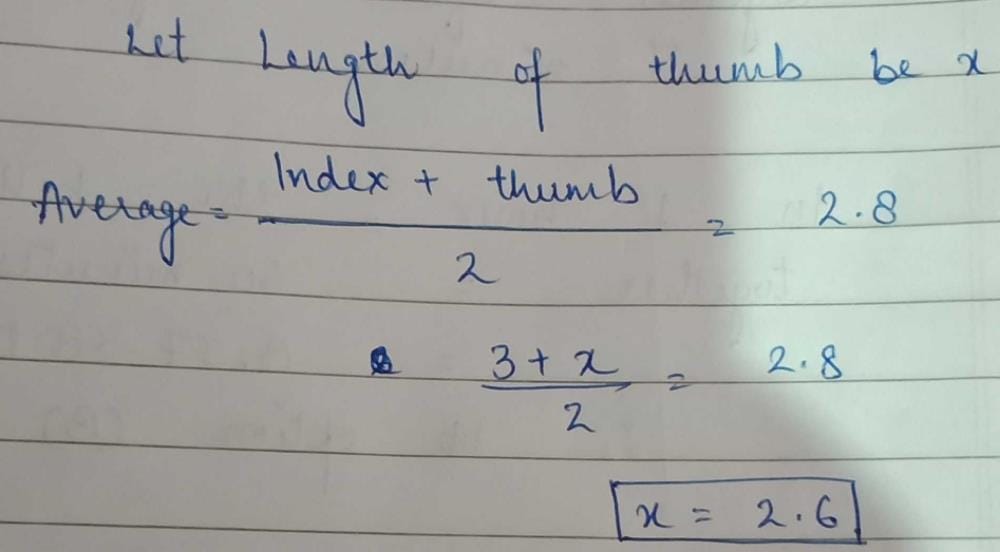 Let Length of thumb be x
Average = Index + thumb / 2 = 2.8
3 + x / 2 = 2.8
x = 2.6